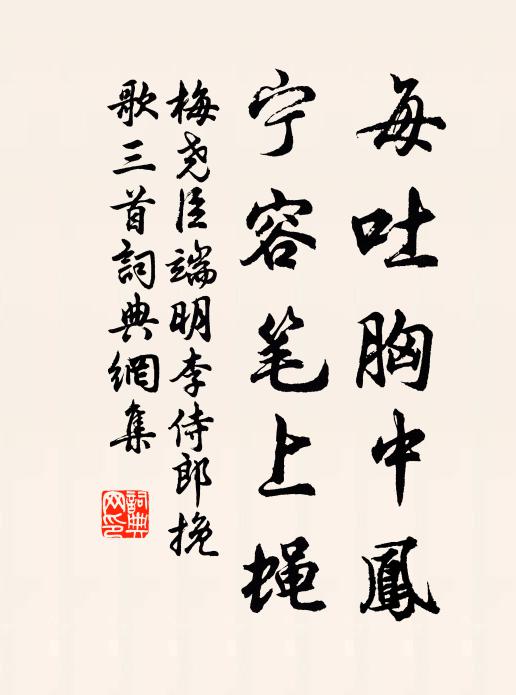 每吐胸中鳳
宁容笔上蝇
梅尧臣端明李侍郎挽
歌三首詞典網集
詞典
网印